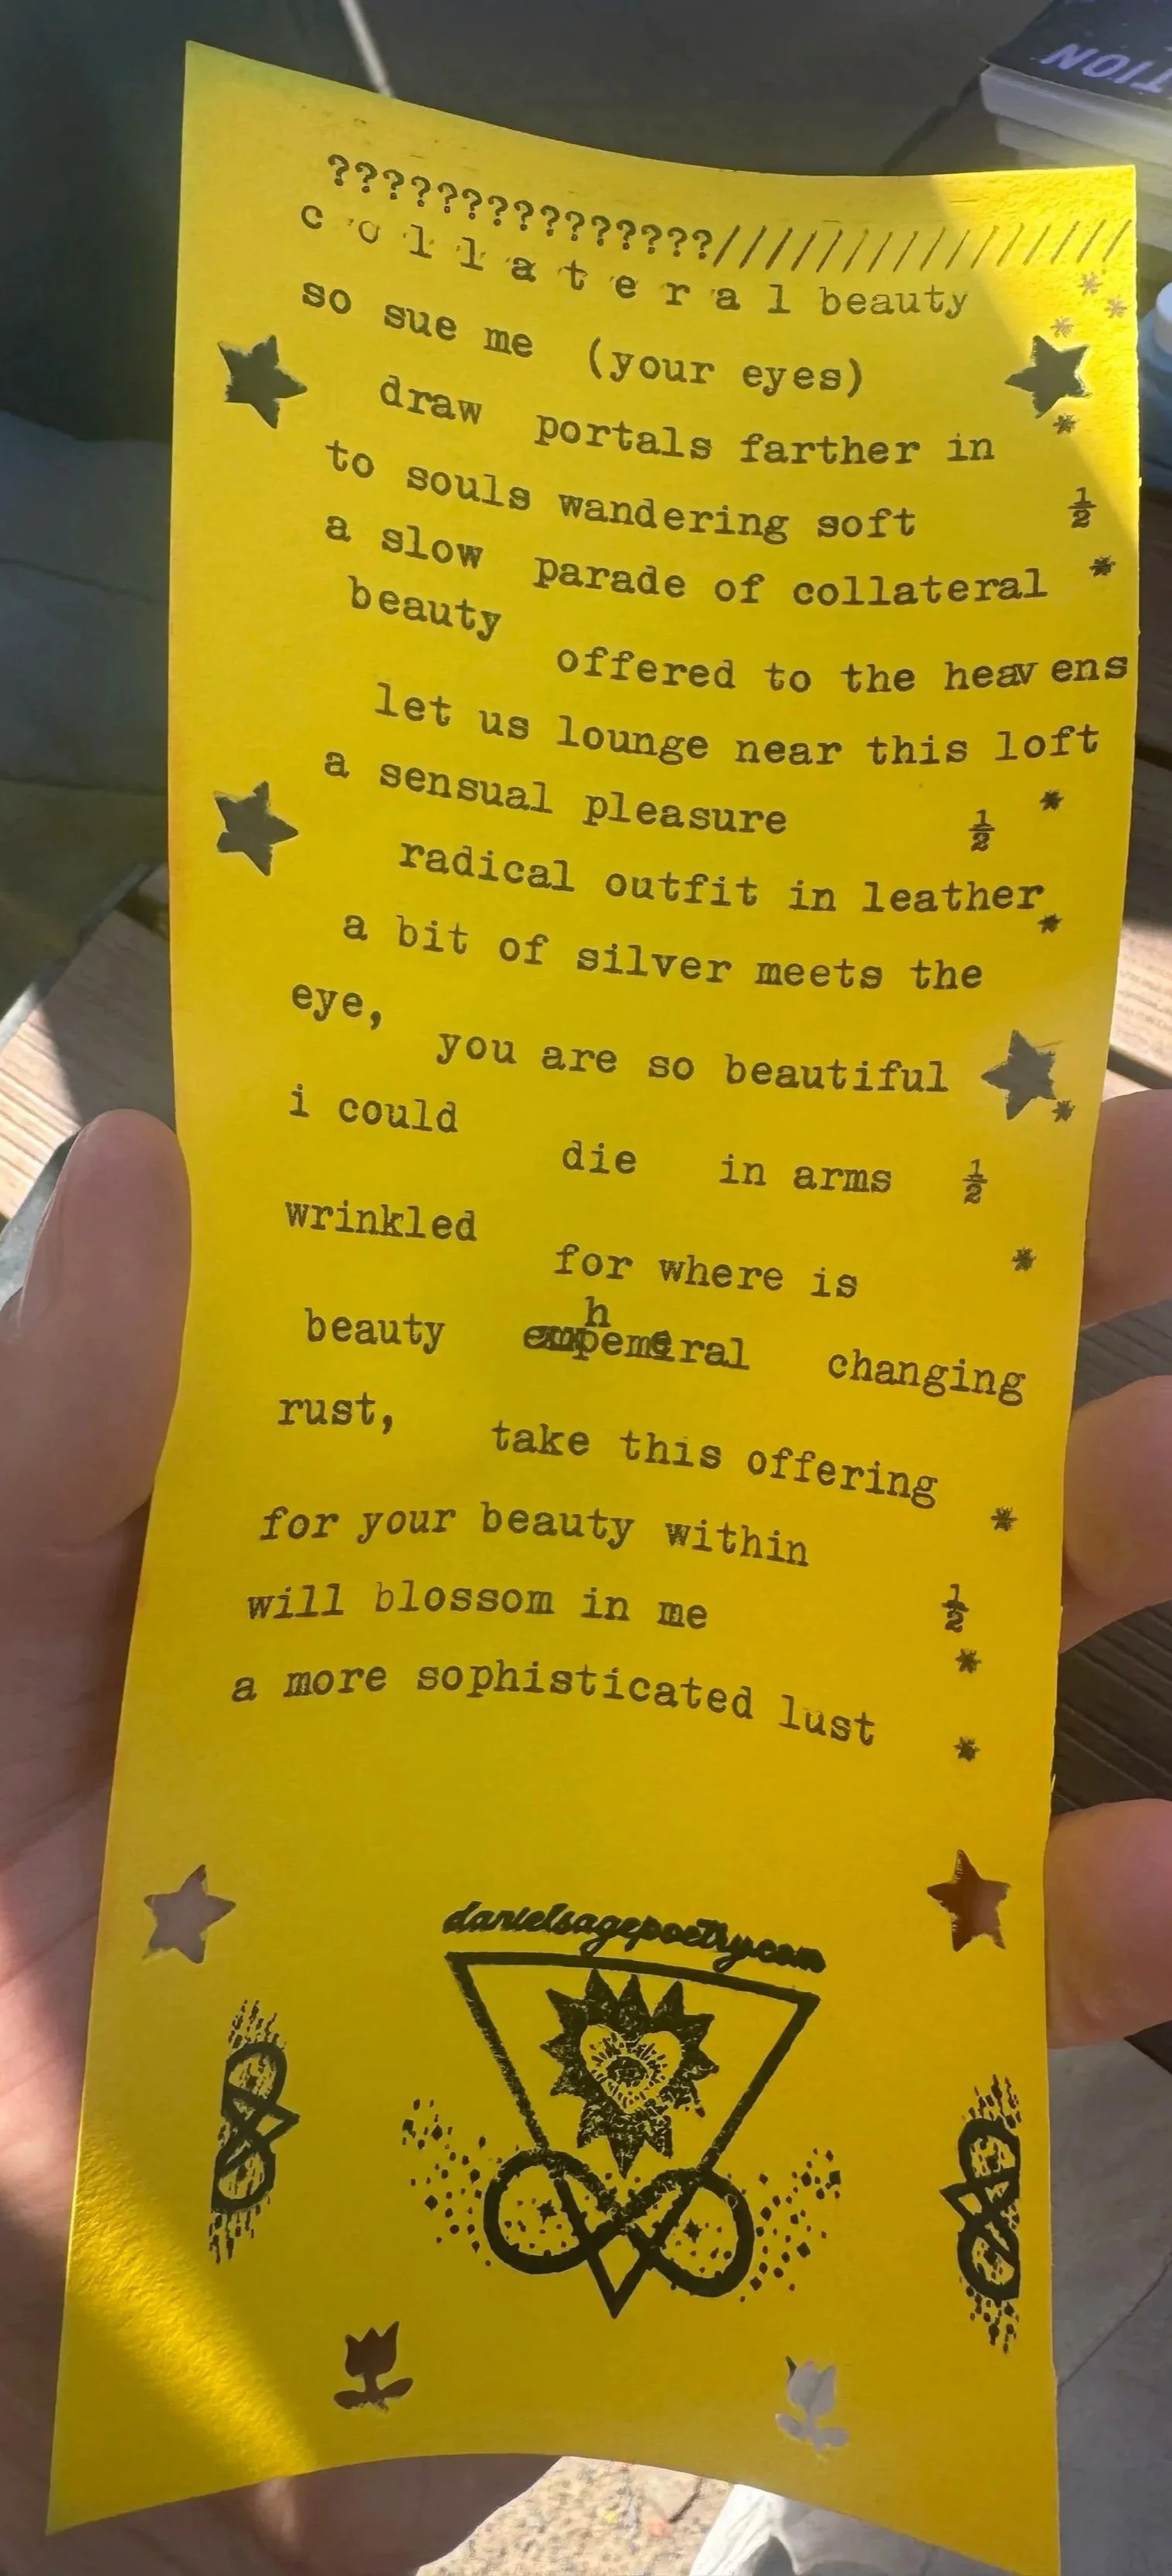 TION
???????????????////////////////
c o l l a t e r a l beauty
so sue me (your eyes)
draw portals farther in
to souls wandering soft
½
a slow parade of collateral *
beauty
offered to the heavens
let us lounge near this loft
a sensual pleasure ½ *
radical outfit in leather *
a bit of silver meets the
eye,
you are so beautiful
i could
die in arms ½
wrinkled
for where is *
h
beauty changing
rust,
take this offering *
for your beauty within
will blossom in me ½
*
a more sophisticated lust *
danielsagepoetry.com